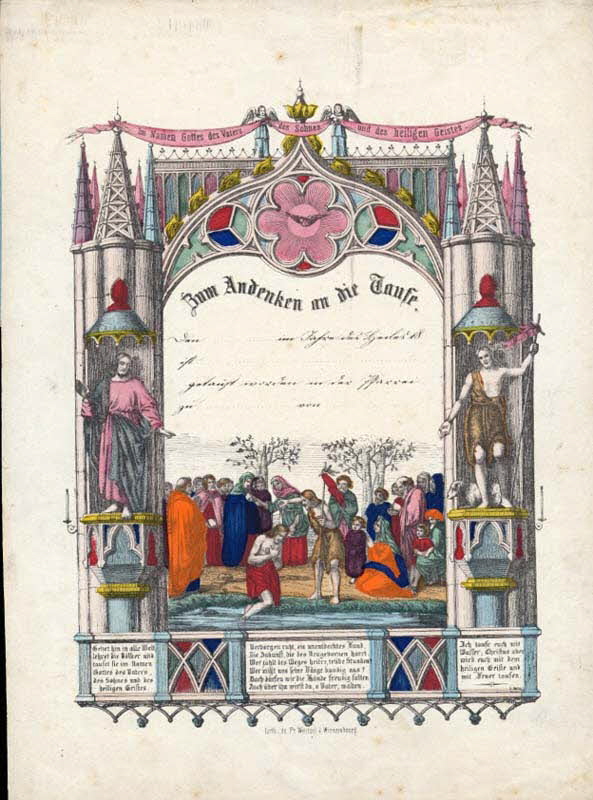 Im Namen Gottes des Vaters des Sohnes und des heiligen Geistes
Zum Andenken an die Taufe.
Den im Jahre des Heiles 18
ist
getauft worden in der Pfarrei
zu von
Gehet hin in alle Welt
lehret die Völker und
taufet sie im Namen
Gottes des Vaters,
des Sohnes und des
heiligen Geistes
Verborgen ruht, ein unentdecktes Land
Die Zukunft, die des Neugebornen harrt.
Wer zählt des Weges heitre, trübe Stunden
Wer ist uns seine Länge kundig aus?
Doch dürfen wir die Hände freudig falten
Auch über ihn wirst du, o Vater, walten.
Ich taufe euch mit
Wasser, Christus aber
wird euch mit dem
heiligen Geiste und
mit Feuer taufen.
Lith. de Fr. Wentzel à Wissembourg